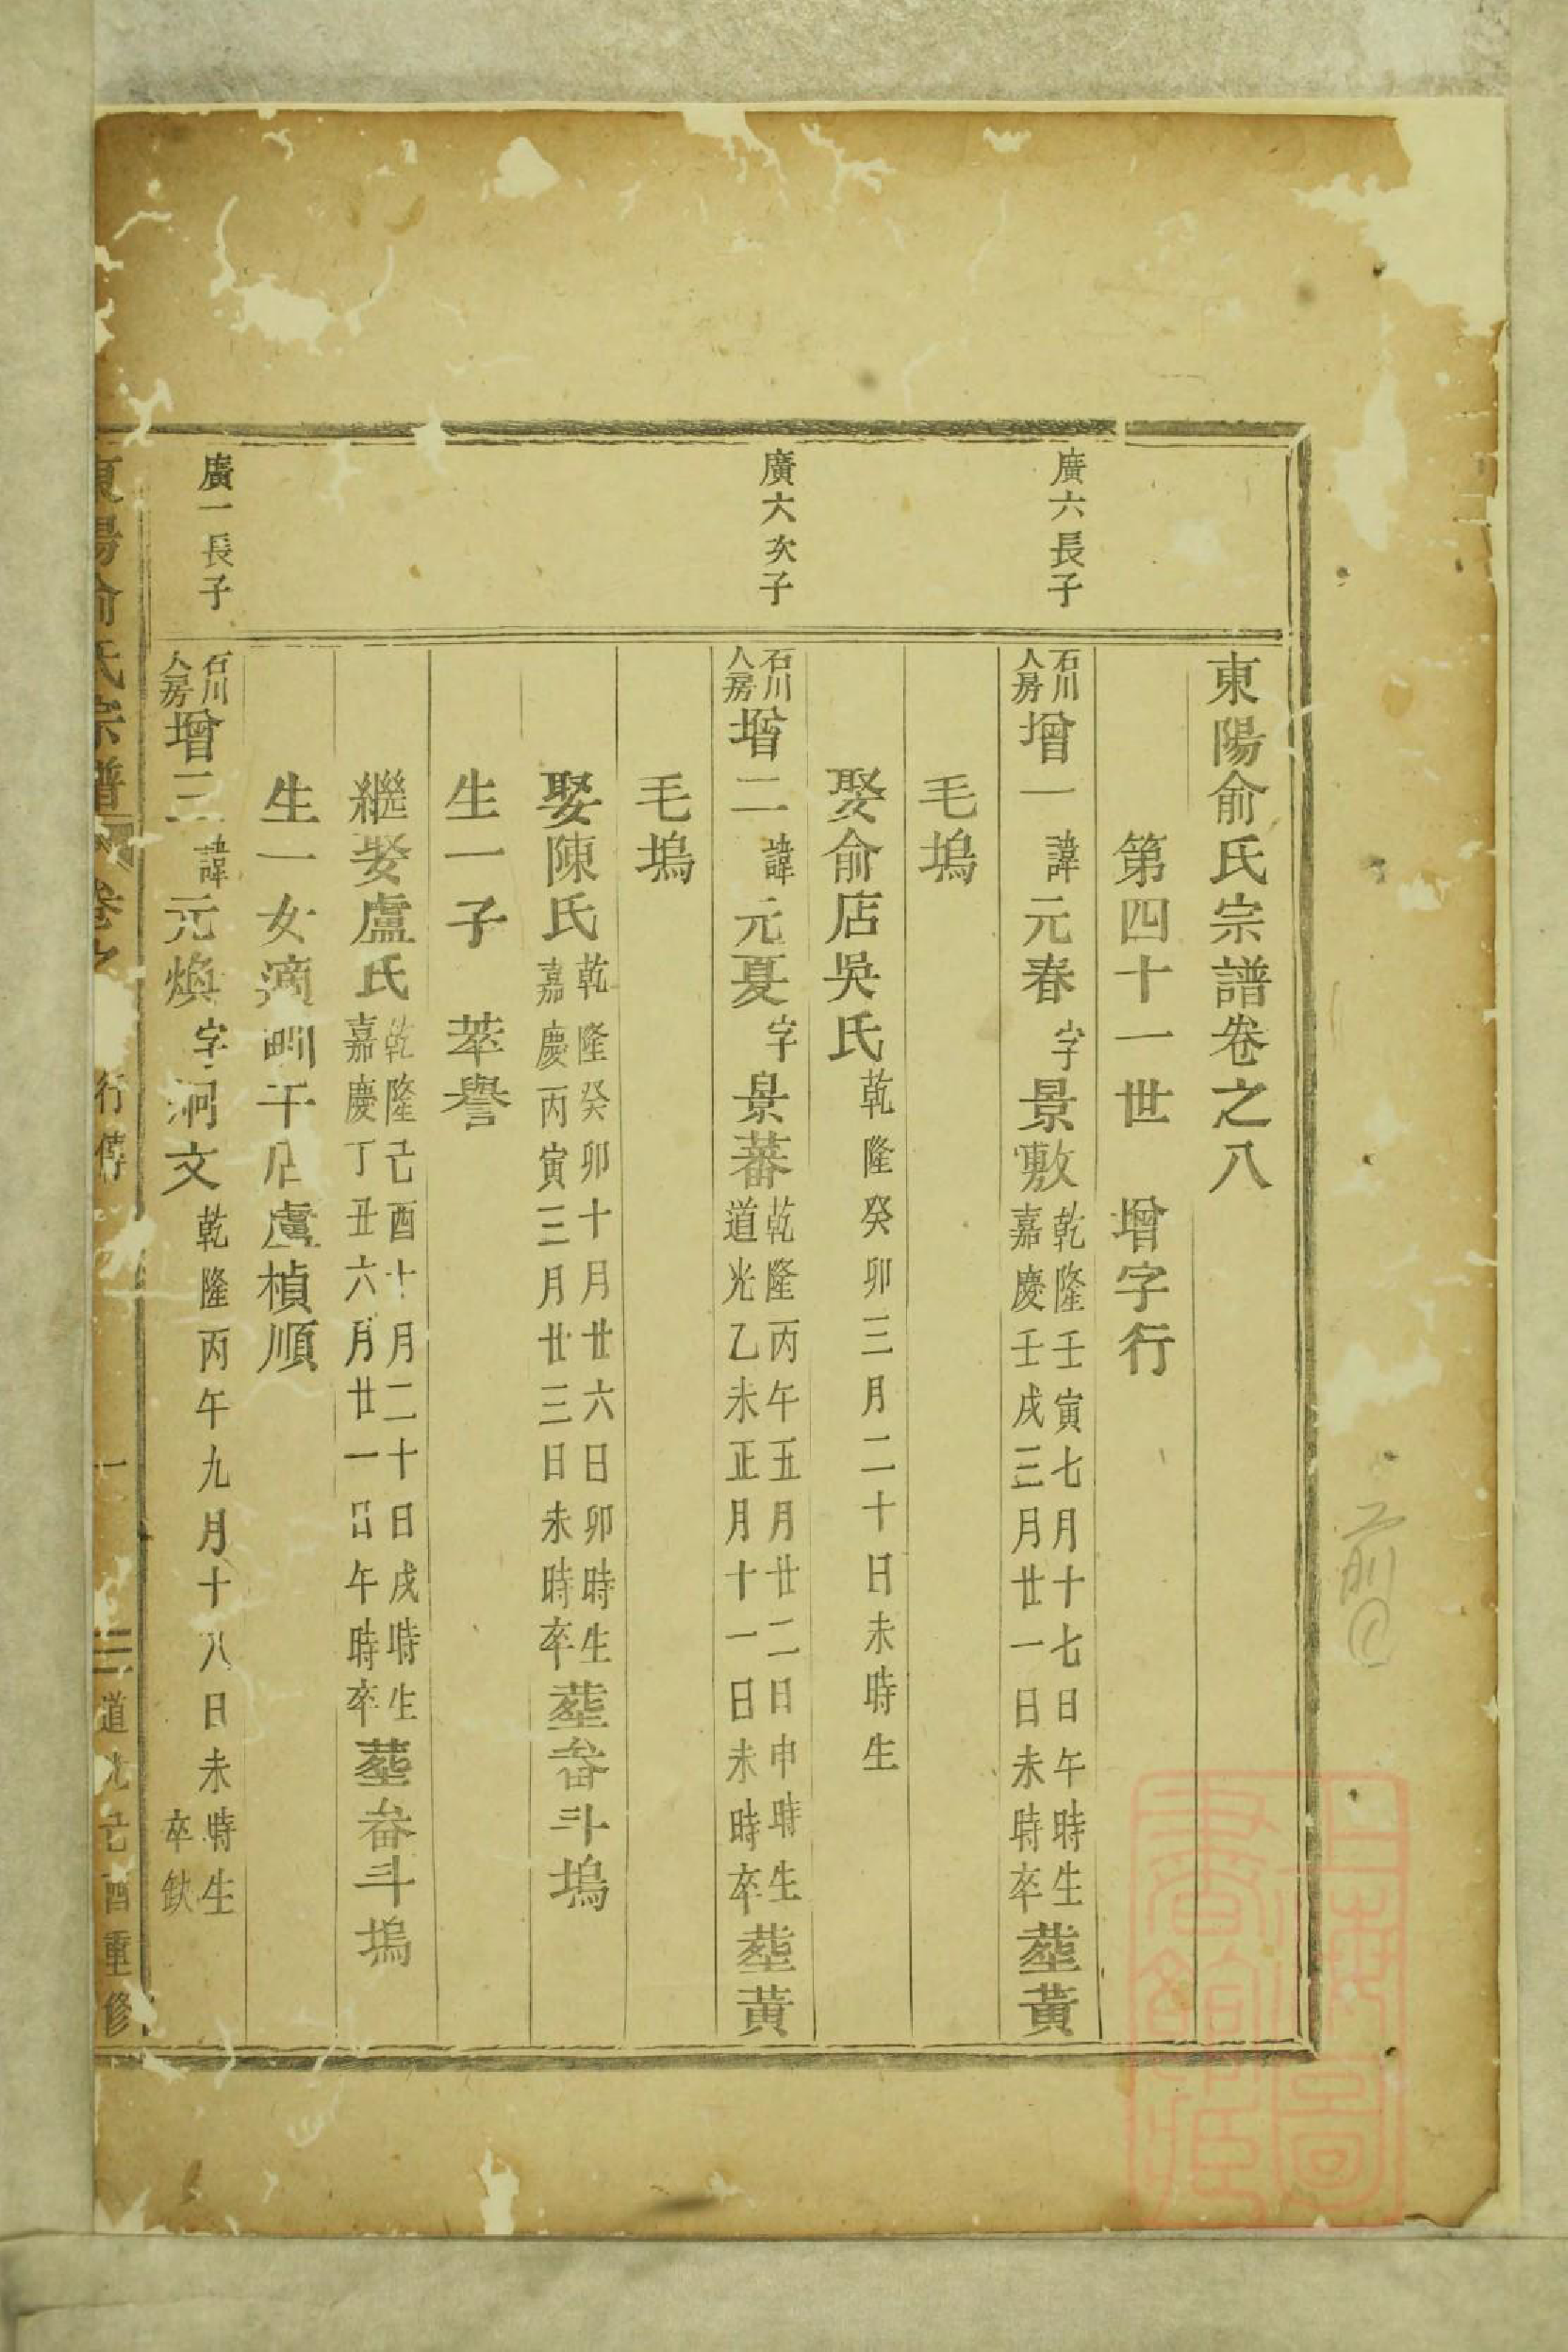 東陽俞氏宗譜卷之八
第四十一世　增字行
廣六長子
石川人房增一諱元春字景敷乾隆壬寅七月十七日午時生嘉慶壬戌三月廿一日未時卒塟黃
毛塢
娶俞店吳氏乾隆癸卯三月二十日未時生
廣六次子
石川人房增二諱元夏字景蕃乾隆丙午五月廿二日申時生道光乙未正月十一日未時卒塟黃
毛塢
娶陳氏乾隆癸卯十月廿六日卯時生嘉慶丙寅三月廿三日未時卒塟畚斗塢
生一子　萃譽
繼娶盧氏乾隆己酉十月二十日戌時生嘉慶丁丑六月廿一日午時卒塟畚斗塢
生一女適店盧楨順
廣一長子
石川人房增三諱元煥字洞文乾隆丙午九月十八日未時生卒缺
東陽俞氏宗譜卷之　行傳　一　道光己酉重修
上海圖書館藏